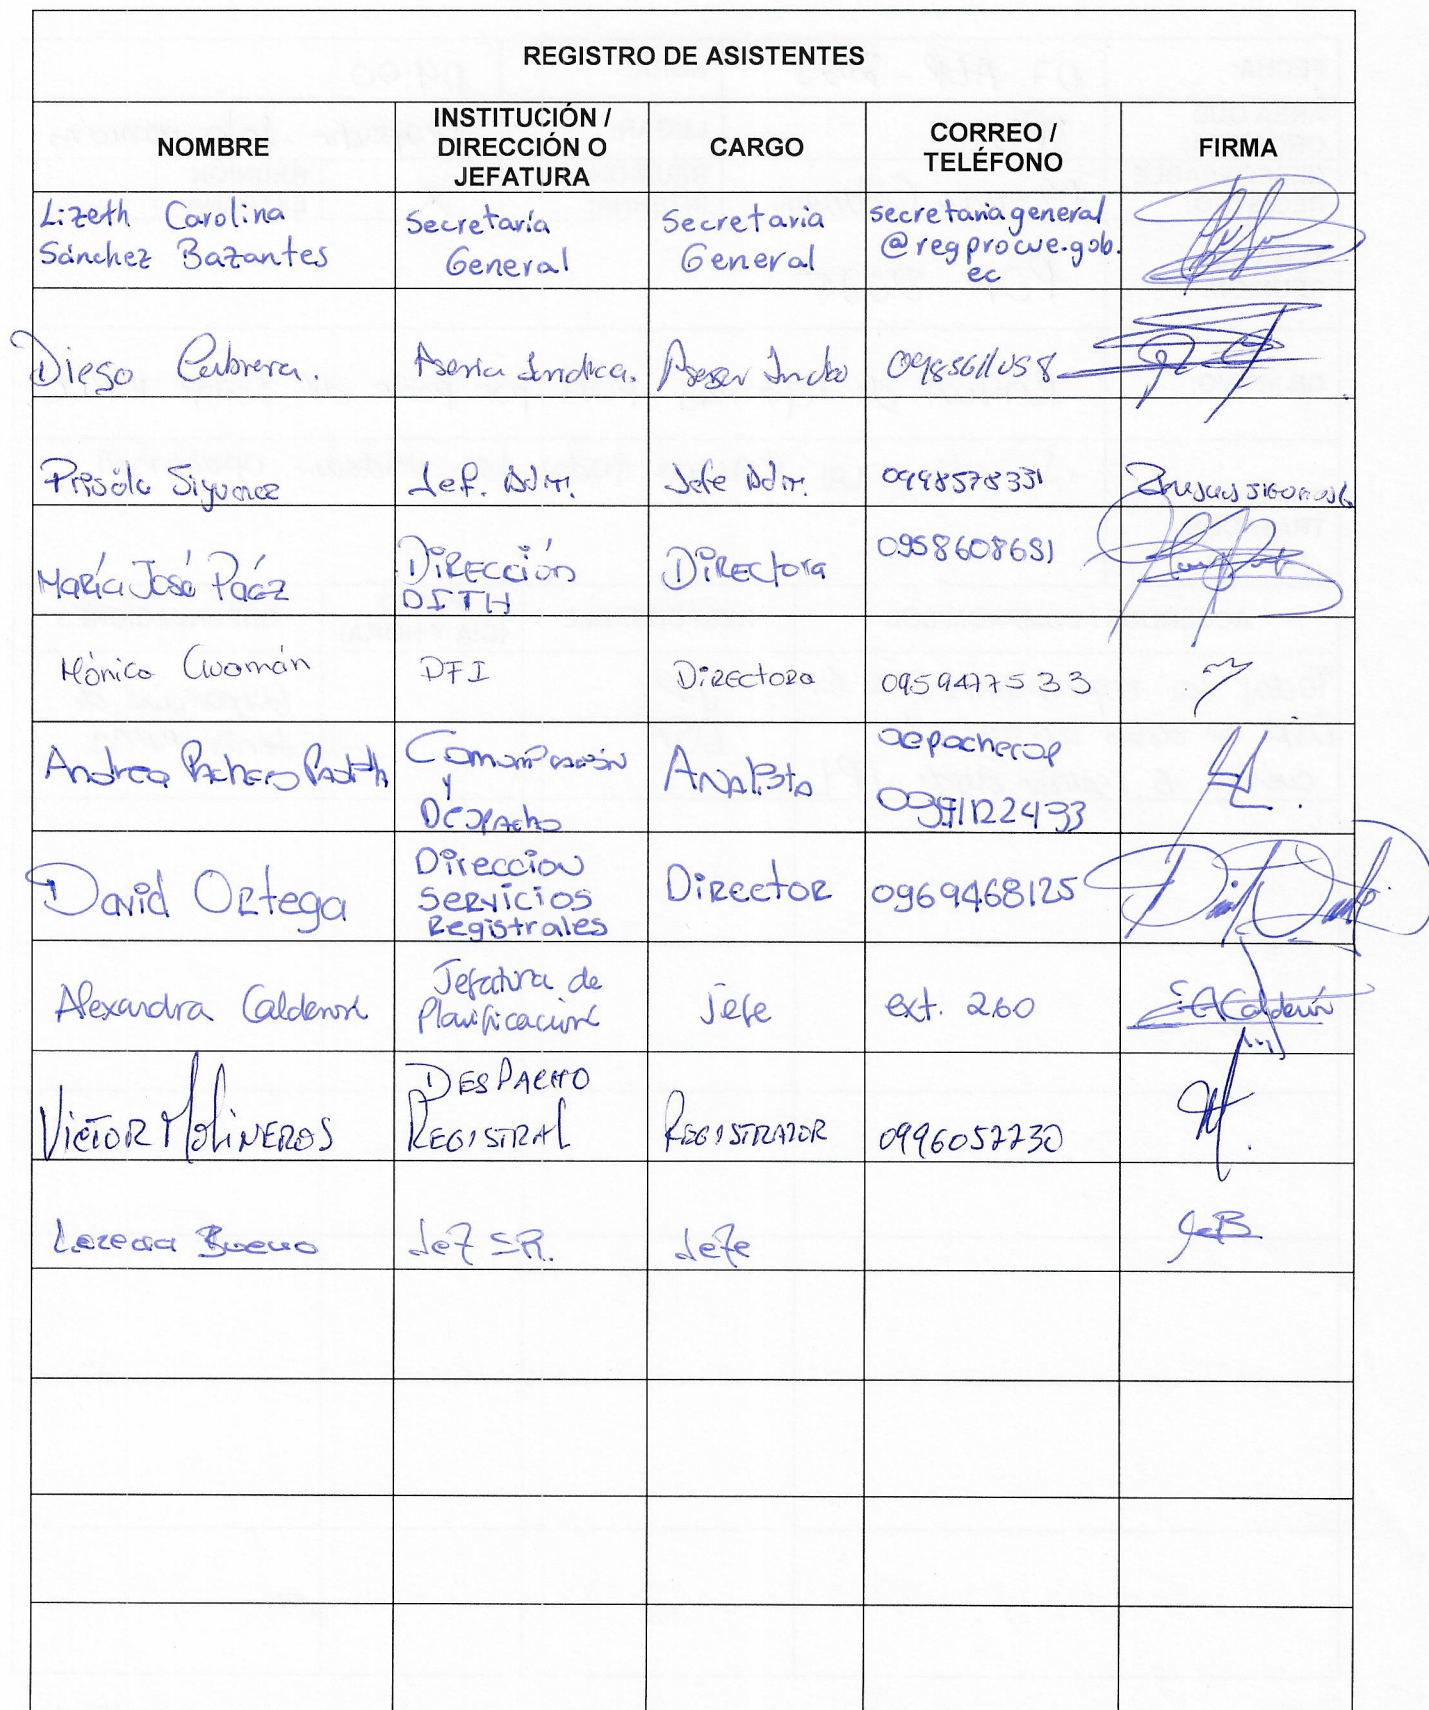 REGISTRO DE ASISTENTES
NOMBRE
INSTITUCIÓN /
DIRECCIÓN O
JEFATURA
CARGO
CORREO /
TELÉFONO
FIRMA
Lizeth Carolina
Sánchez Bazantes
Secretaría
General
Secretaria
General
secretariageneral
@regprocue.gob.
ec
Diego Cabrera.
Asesor
Jef. Adm.
Jefe Adm.
0998578331
María José Paáz
Dirección
DITH
Directora
0958608691
Mónica Guamán
DFI
Directora
0959477533
Andrea Pacheco
y
Despacho
Analista
aepachecop
David Ortega
Direccion
Servicios
Registrales
Director
0969468125
Alexandra Calderón
Jefatura de
Planificación
Jefe
ext. 260
EACalderón
Victor Molineros
Despacho
Registral
Registrador
0996057730
Lorena Bueno
Jef SR.
Jefe